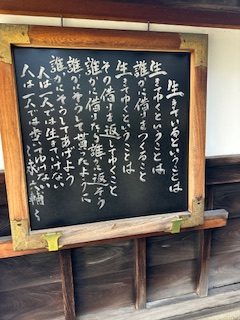 生きているということは
生きているということは
誰かに借りをつくること
生きてゆくということは
その借りを返してゆくこと
誰かに借りたら誰かに返そう
誰かにそうして貰ったように
誰かにそうしてあげよう
人は一人では生きていけない
人は一人では歩いてゆけない 永六輔